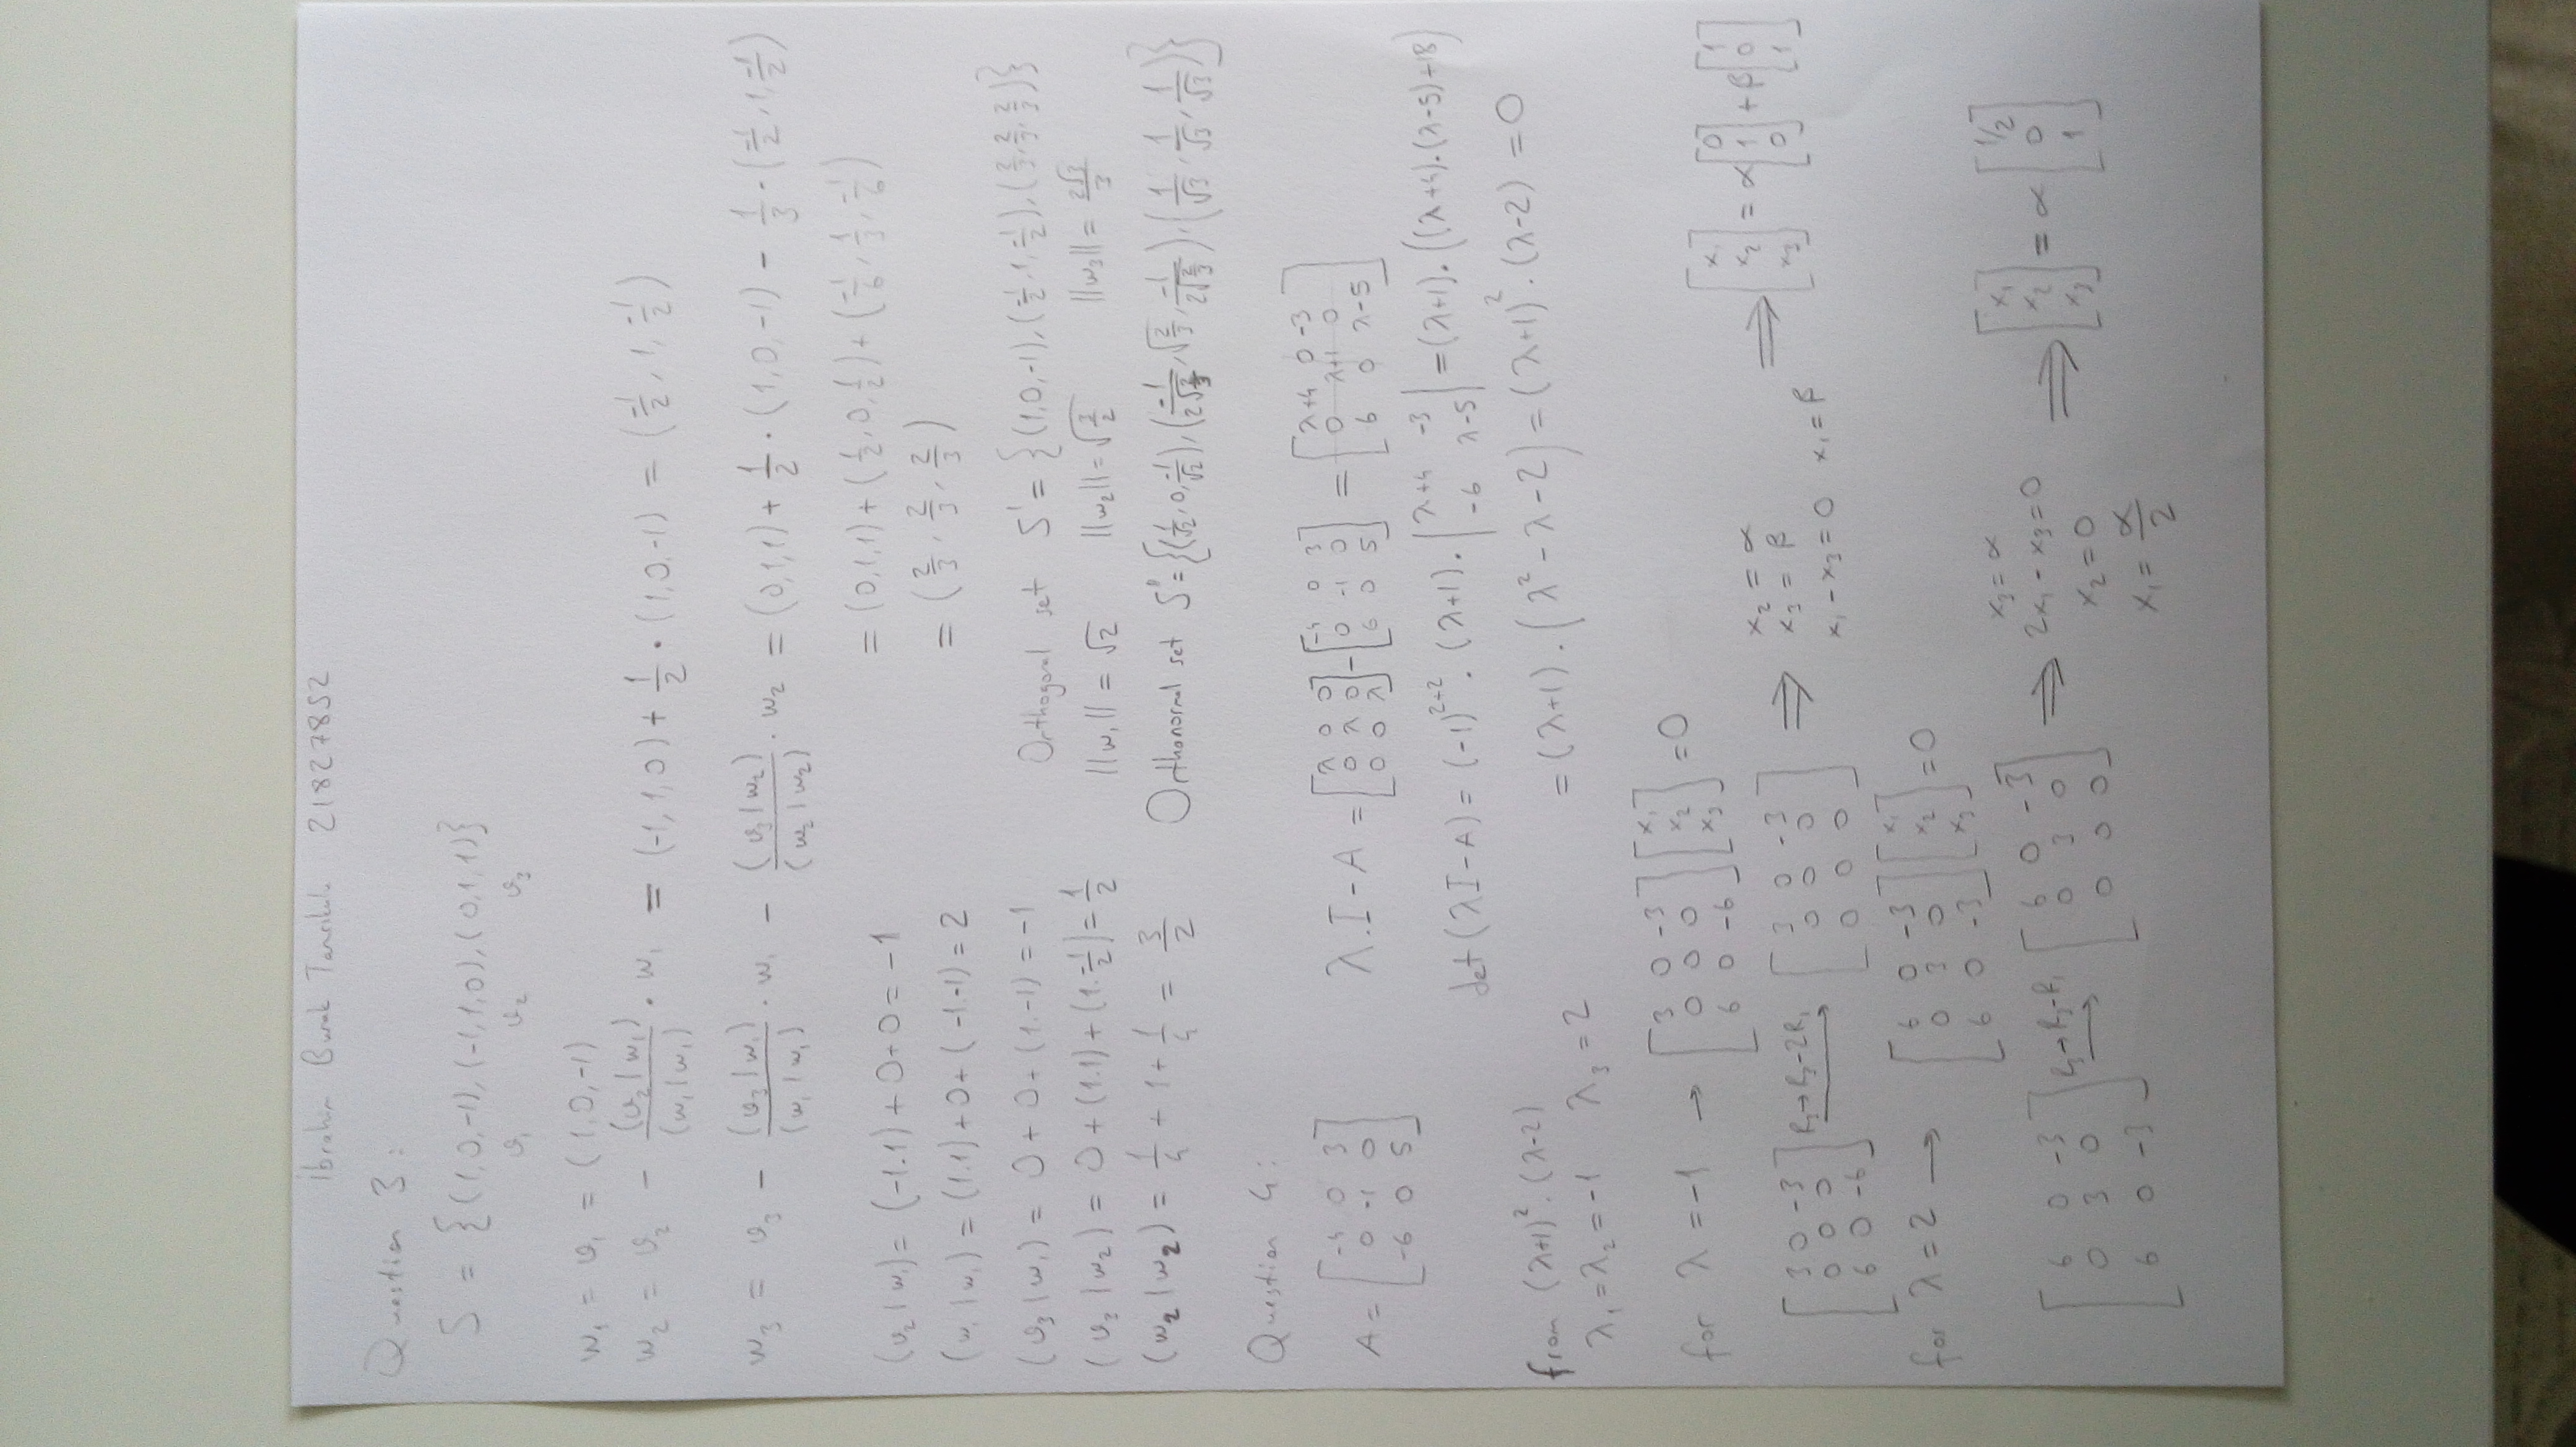 İbrahim Burak Tanrıkulu 21827852
Question 3:
S = {(1,0,-1),(-1,1,0),(0,1,1)}
v₁ v₂ v₃
w₁ = v₁ = (1,0,-1)
w₂ = v₂ - (v₂|w₁)/(w₁|w₁) · w₁ = (-1,1,0) + 1/2 · (1,0,-1) = (-1/2, 1, -1/2)
w₃ = v₃ - (v₃|w₁)/(w₁|w₁) · w₁ - (v₃|w₂)/(w₂|w₂) · w₂ = (0,1,1) + 1/2 · (1,0,-1) - 1/3 · (-1/2, 1, -1/2)
= (0,1,1) + (1/2, 0, 1/2) + (-1/6, 1/3, -1/6)
= (2/3, 2/3, 2/3)
(v₂|w₁) = (-1.1) + 0 + 0 = -1
(w₁|w₁) = (1.1) + 0 + (-1.-1) = 2
(v₃|w₁) = 0 + 0 + (1.-1) = -1
(v₃|w₂) = 0 + (1.1) + (1.-1/2) = 1/2
(w₂|w₂) = 1/4 + 1 + 1/4 = 3/2
Orthogonal set S' = {(1,0,-1),(-1/2,1,-1/2),(2/3,2/3,2/3)}
||w₁|| = √2 ||w₂|| = √(3/2) ||w₃|| = 2√3/3
Orthonormal set S'' = {(1/√2, 0, -1/√2), (-1/2√(2/3), √(2/3), -1/2√(2/3)), (1/√3, 1/√3, 1/√3)}
Question 4:
A = [-4 0 3; 0 -1 0; -6 0 5]
λ.I - A = [λ 0 0; 0 λ 0; 0 0 λ] - [-4 0 3; 0 -1 0; 6 0 5] = [λ+4 0 -3; 0 λ+1 0; 6 0 λ-5]
det(λI-A) = (-1)²⁺² . (λ+1) . |λ+4 -3; -6 λ-5| = (λ+1) . ((λ+4).(λ-5)+18)
= (λ+1) . (λ² - λ - 2) = (λ+1)² . (λ-2) = 0
from (λ+1)² . (λ-2)
λ₁ = λ₂ = -1 λ₃ = 2
for λ = -1 → [3 0 -3; 0 0 0; 6 0 -6] [x₁; x₂; x₃] = 0
[3 0 -3; 0 0 0; 6 0 -6] R₃→R₃-2R₁ [3 0 -3; 0 0 0; 0 0 0] ⇒
x₂ = α
x₃ = β
x₁ - x₃ = 0 x₁ = β
⇒ [x₁; x₂; x₃] = α [0; 1; 0] + β [1; 0; 1]
for λ = 2 → [6 0 -3; 0 3 0; 6 0 -3] [x₁; x₂; x₃] = 0
[6 0 -3; 0 3 0; 6 0 -3] R₃→R₃-R₁ [6 0 -3; 0 3 0; 0 0 0] ⇒
x₃ = α
2x₁ - x₃ = 0
x₂ = 0
x₁ = α/2
⇒ [x₁; x₂; x₃] = α [1/2; 0; 1]